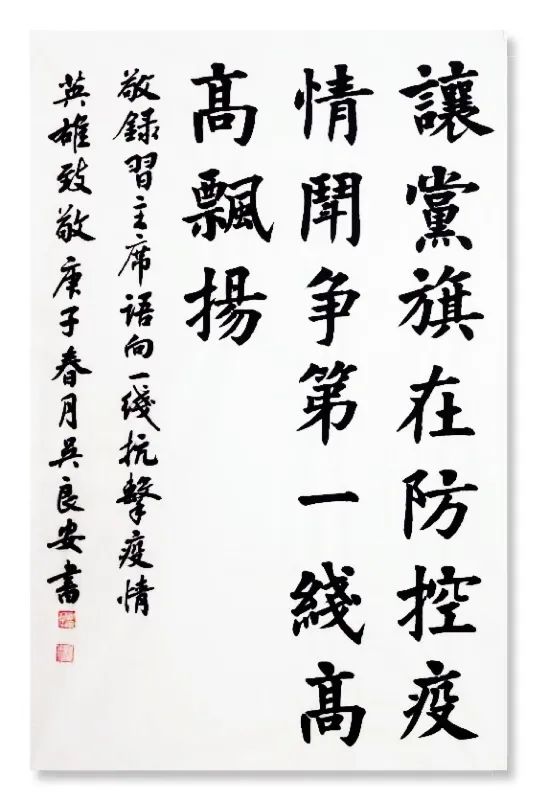 讓黨旗在防控疫
情鬪争第一綫髙
髙飄揚
敬録習主席语向一綫抗擊疫情
英雄致敬庚子春月吴良安書